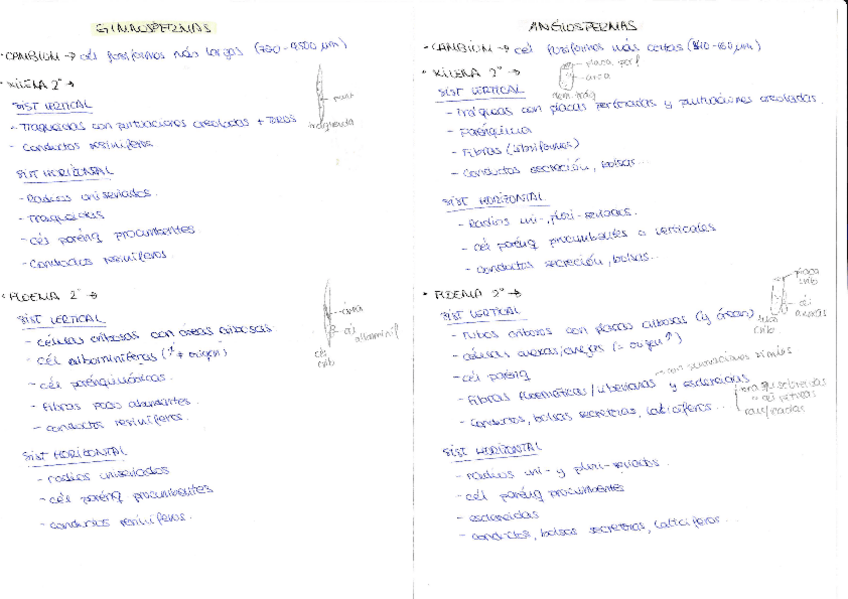 GIMNOSPERMAS
· CAMBIUM → cél fusiformes más largas (700-9500 µm)
· XILEMA 2º →
SIST VERTICAL
- Traqueidas con puntuaciones areoladas + TOROS
- Conductos resiníferos
punt
traqueida
SIST HORIZONTAL
- Radios uniseriados.
- Traqueidas
- cél parénq procumbentes
- Conductos resiníferos.
· FLOEMA 2º →
SIST VERTICAL
- células cribosas con áreas cribosas
- cél albuminíferas (≠ origen)
- cél parenquimáticas.
- Fibras poco abundantes.
- conductos resiníferos.
área
cél
albuminif
cél
crib
SIST HORIZONTAL
- radios uniseriados
- cél parénq procumbentes
- conductos resiníferos.
ANGIOSPERMAS
· CAMBIUM → cél fusiformes más cortas
· XILEMA 2º →
placa perf
area
SIST VERTICAL
- Tráqueas con placas perforadas y puntuaciones areoladas.
- Parénquima
- Fibras (libriformes)
- Conductos secreción, bolsas...
SIST HORIZONTAL
- Radios uni-, pluri-seriados.
- cél parénq procumbentes o verticales
- conductos secreción, bolsas...
· FLOEMA 2º →
placa
crib
cél
anexas
tubo
crib
SIST VERTICAL
- Tubos cribosos con placas cribosas (y áreas)
- células anexas (= origen)
- cél parénq
- Fibras floemáticas/liberianas y esclereidas
- conductos, bolsas secretoras, laticíferos...
ramificadas
SIST HORIZONTAL
- radios uni- y pluri-seriados.
- cél parénq procumbentes
- esclereidas
- conductos, bolsas secretoras, laticíferos...